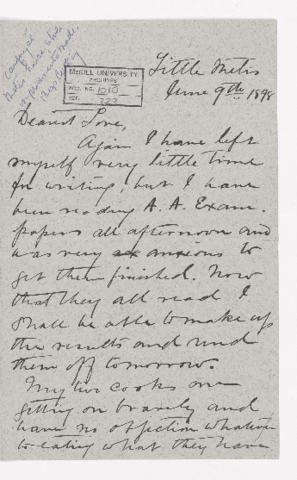 McGILL UNIVERSITY
ARCHIVES
ACC. NO. 1010
REF.
Little Metis
June 9th 1898
Dearest Love,
Again I have left
myself very little time
for writing, but I have
been reading A. A. Exam.
papers all afternoon and
was very anxious to
get them finished. Now
that they all read I
shall be able to make up
the results and send
them off tomorrow.
My two cooks are
getting on bravely and
have no objection whatever
to eating what they have